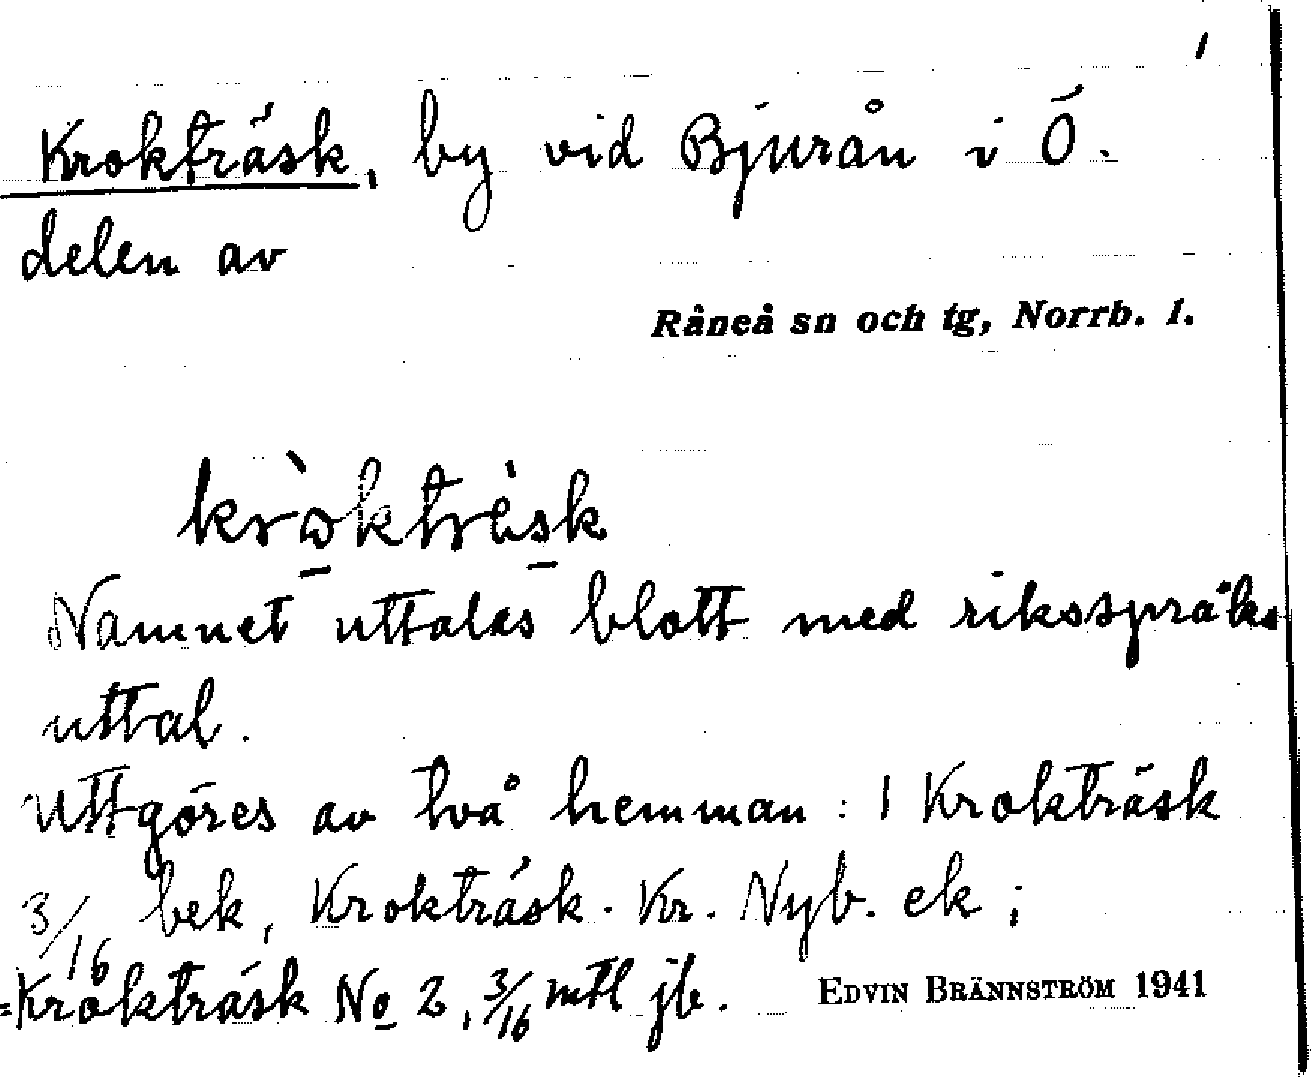 1
Krokträsk, by vid Bjurån i Ö.
delen av
Råneå sn och tg, Norrb. l.
kròktrèsk
Namnet uttalas blott med riksspråks
uttal.
Uttgöres av två hemman: 1 Krokträsk
3/16 bek, Krokträsk. Kr. Nyb. ek;
=Krokträsk No 2, 3/16 mtl jb.
EDVIN BRÄNNSTRÖM 1941